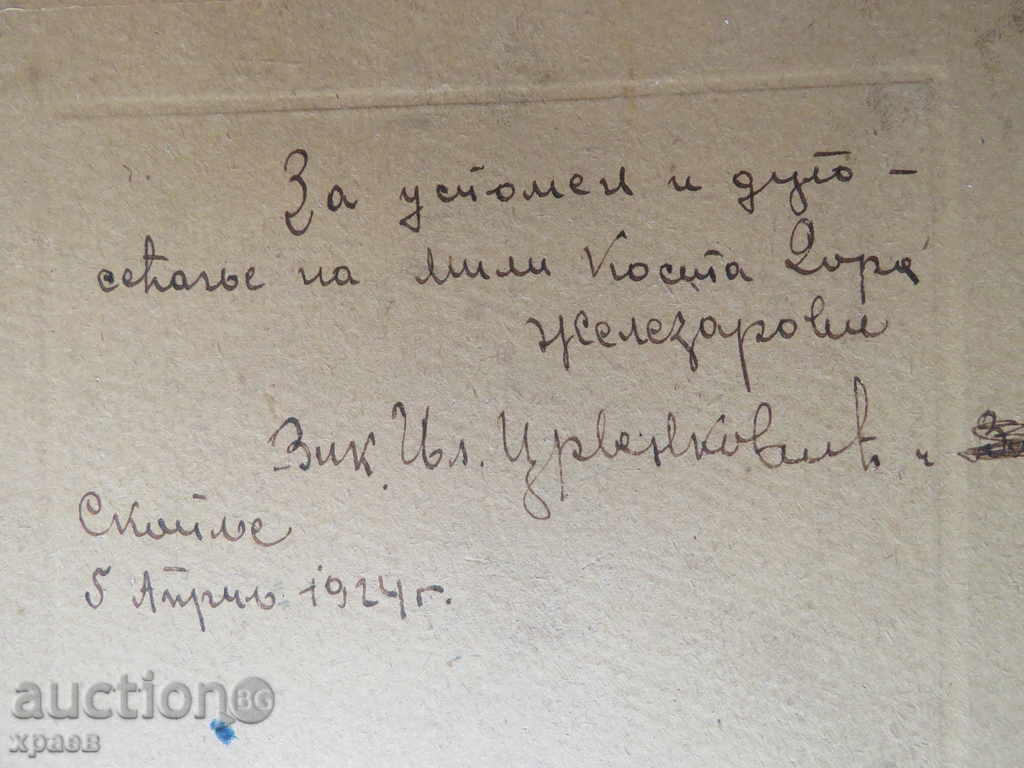 За успомен и дуго –
сећање на мили Коста Дора
Железарови
Ил. Црвенковић и
Скопље
5 Април 1924 г.
auction BG
храев